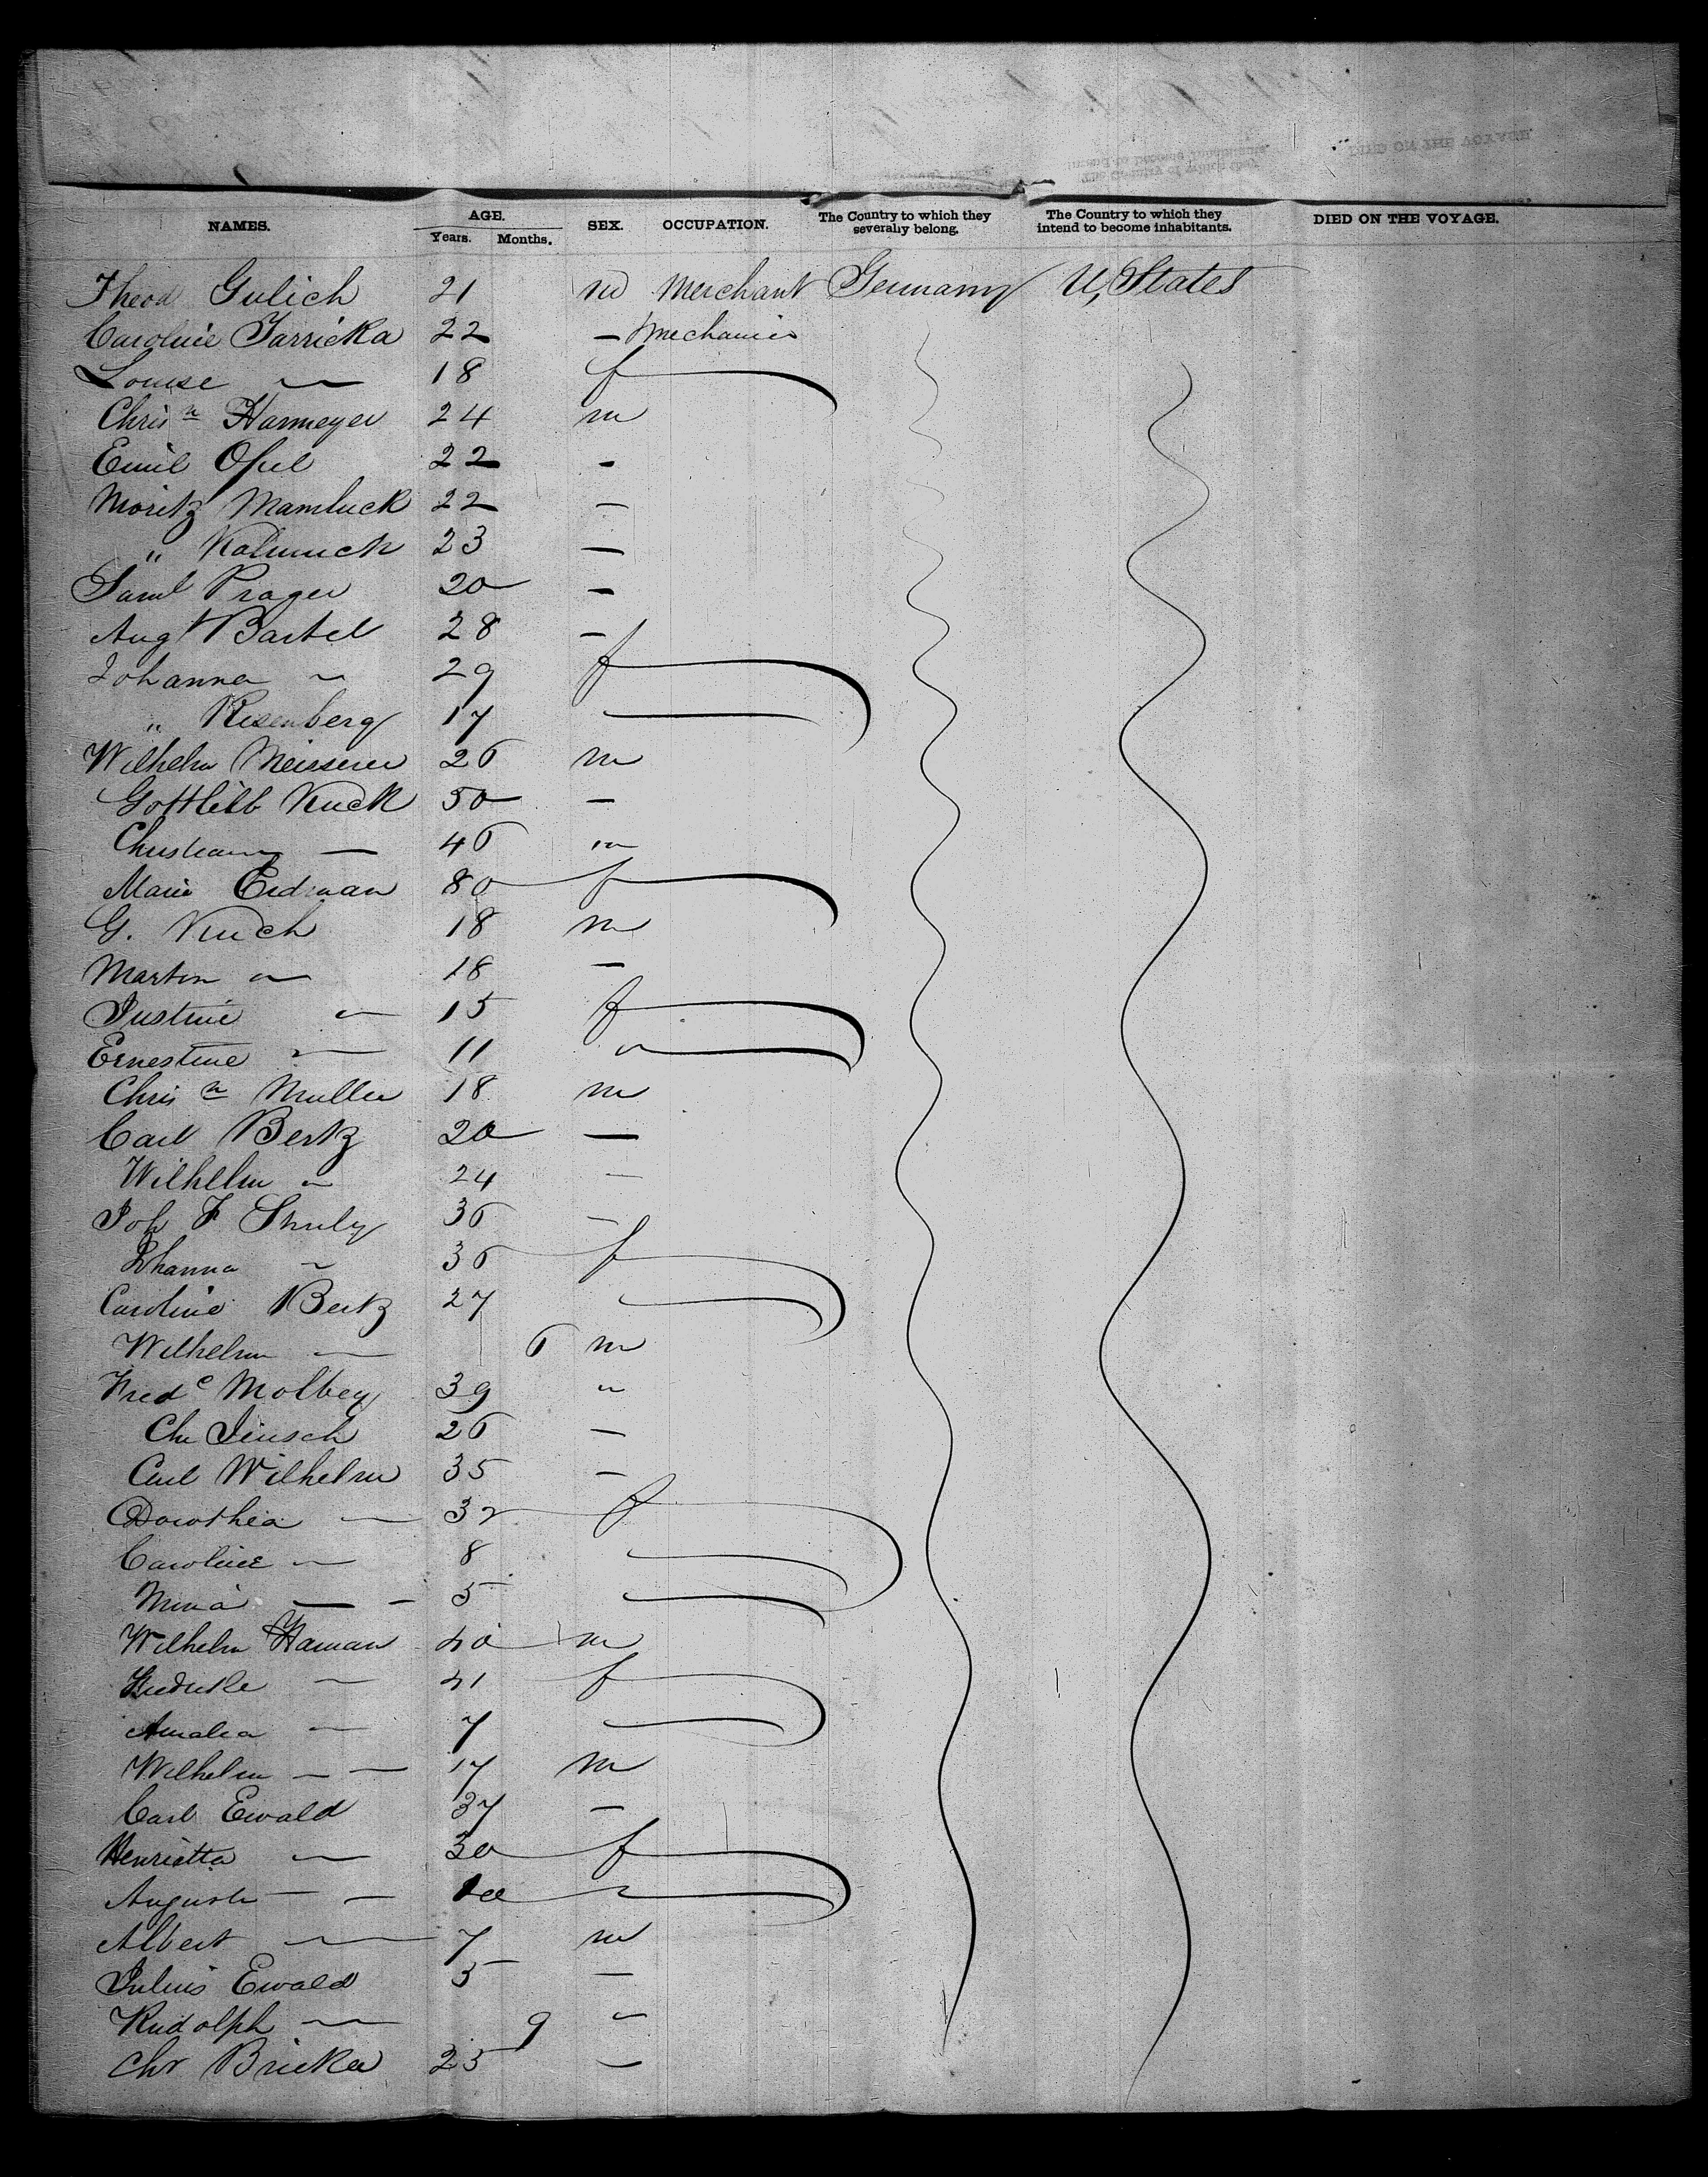 NAMES. AGE. Years. Months. SEX. OCCUPATION. The Country to which they severally belong. The Country to which they intend to become inhabitants. DIED ON THE VOYAGE.
Theod Gulich 21 m Merchant Germany U, States
Caroline Jarricka 22 — Mechanic
Louise — 18 f
Chrisn Harmeyer 24 m
Emil Opel 22 -
Moritz Mamluck 22 —
" Kalmuck 23 —
Saml Prager 20 —
Augt Bartel 28 —
Johanna " 29 f
" Risenberg 17
Wilhelm Meisserer 26 m
Gottlieb Kuck 50 —
Christian — 46 m
Marie Erdman 80 f
G. Kuch 18 m
Martin — 18 —
Justine — 15 f
Ernestine — 11
Chrisn Muller 18 m
Carl Bertz 20 —
Wilhelm — 24 —
Joh F 36 —
Johanna — 36 f
Caroline Bertz 27
Wilhelm — 6 m
Fredc Molbey 39 "
Chr Jeusch 26 —
Carl Wilhelm 35 —
Dorothea — 32 f
Caroline — 8
Mina — - 5
Wilhelm Haman 40 m
— 41 f
Amalia — 7
Wilhelm — — 17 m
Carl Ewald 37 —
Henrietta — 30 f
Auguste — — 10
Albert — 7 m
Julius Ewald 5 —
Rudolph — 9 —
Chr Bricker 25 —